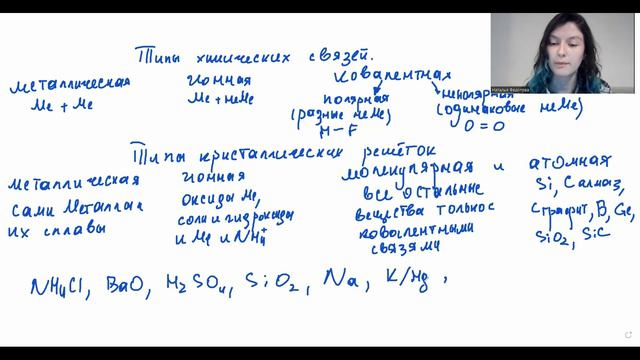 Типы химических связей.
металлическая
Me + Me
ионная
Me + неMe
ковалентная
полярная
(разные неMe)
H–F
неполярная
(одинаковые неMe)
O=O
Типы кристаллических решёток
металлическая
сами металлы
их сплавы
ионная
оксиды Me,
соли и гидроксиды
и Me и NH₄⁺
молекулярная и атомная
все остальные
вещества только с
ковалентными
связями
Si, C алмаз,
C графит, B, Ge,
SiO₂, SiC
NH₄Cl, BaO, H₂SO₄, SiO₂, Na, K/Hg,
Наталья Федотова